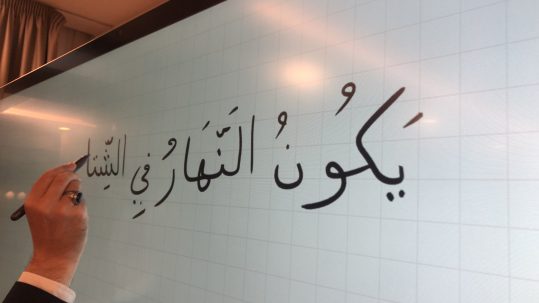 يَكُونُ النَّهَارُ فِي الشِّتَا